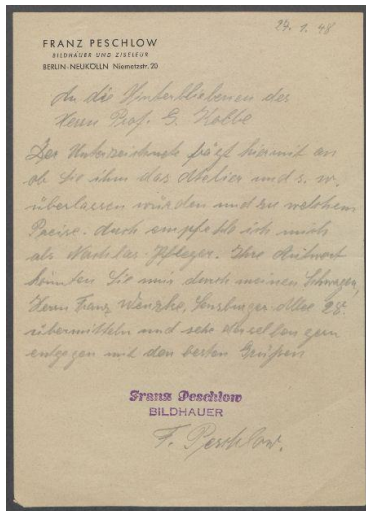 29.1.48
FRANZ PESCHLOW
BILDHAUER UND ZISELEUR
BERLIN-NEUKÖLLN Niemetzstr. 20
An die Hinterbliebenen des
Herrn Prof. G. Kolbe
Der Unterzeichnete frägt hiermit an
ob Sie ihm das Atelier und s. w.
überlassen würden und zu welchem
Preise. Auch empfehle ich mich
als Nachlas-Pfleger. Ihre Antwort
könnten Sie mir durch meinen Schwager,
Herrn Franz Wenzke, Sensburger Allee 28.
übermitteln und sehe desselben gern
entgegen mit den besten Grüßen
Franz Peschlow
BILDHAUER
F. Peschlow.